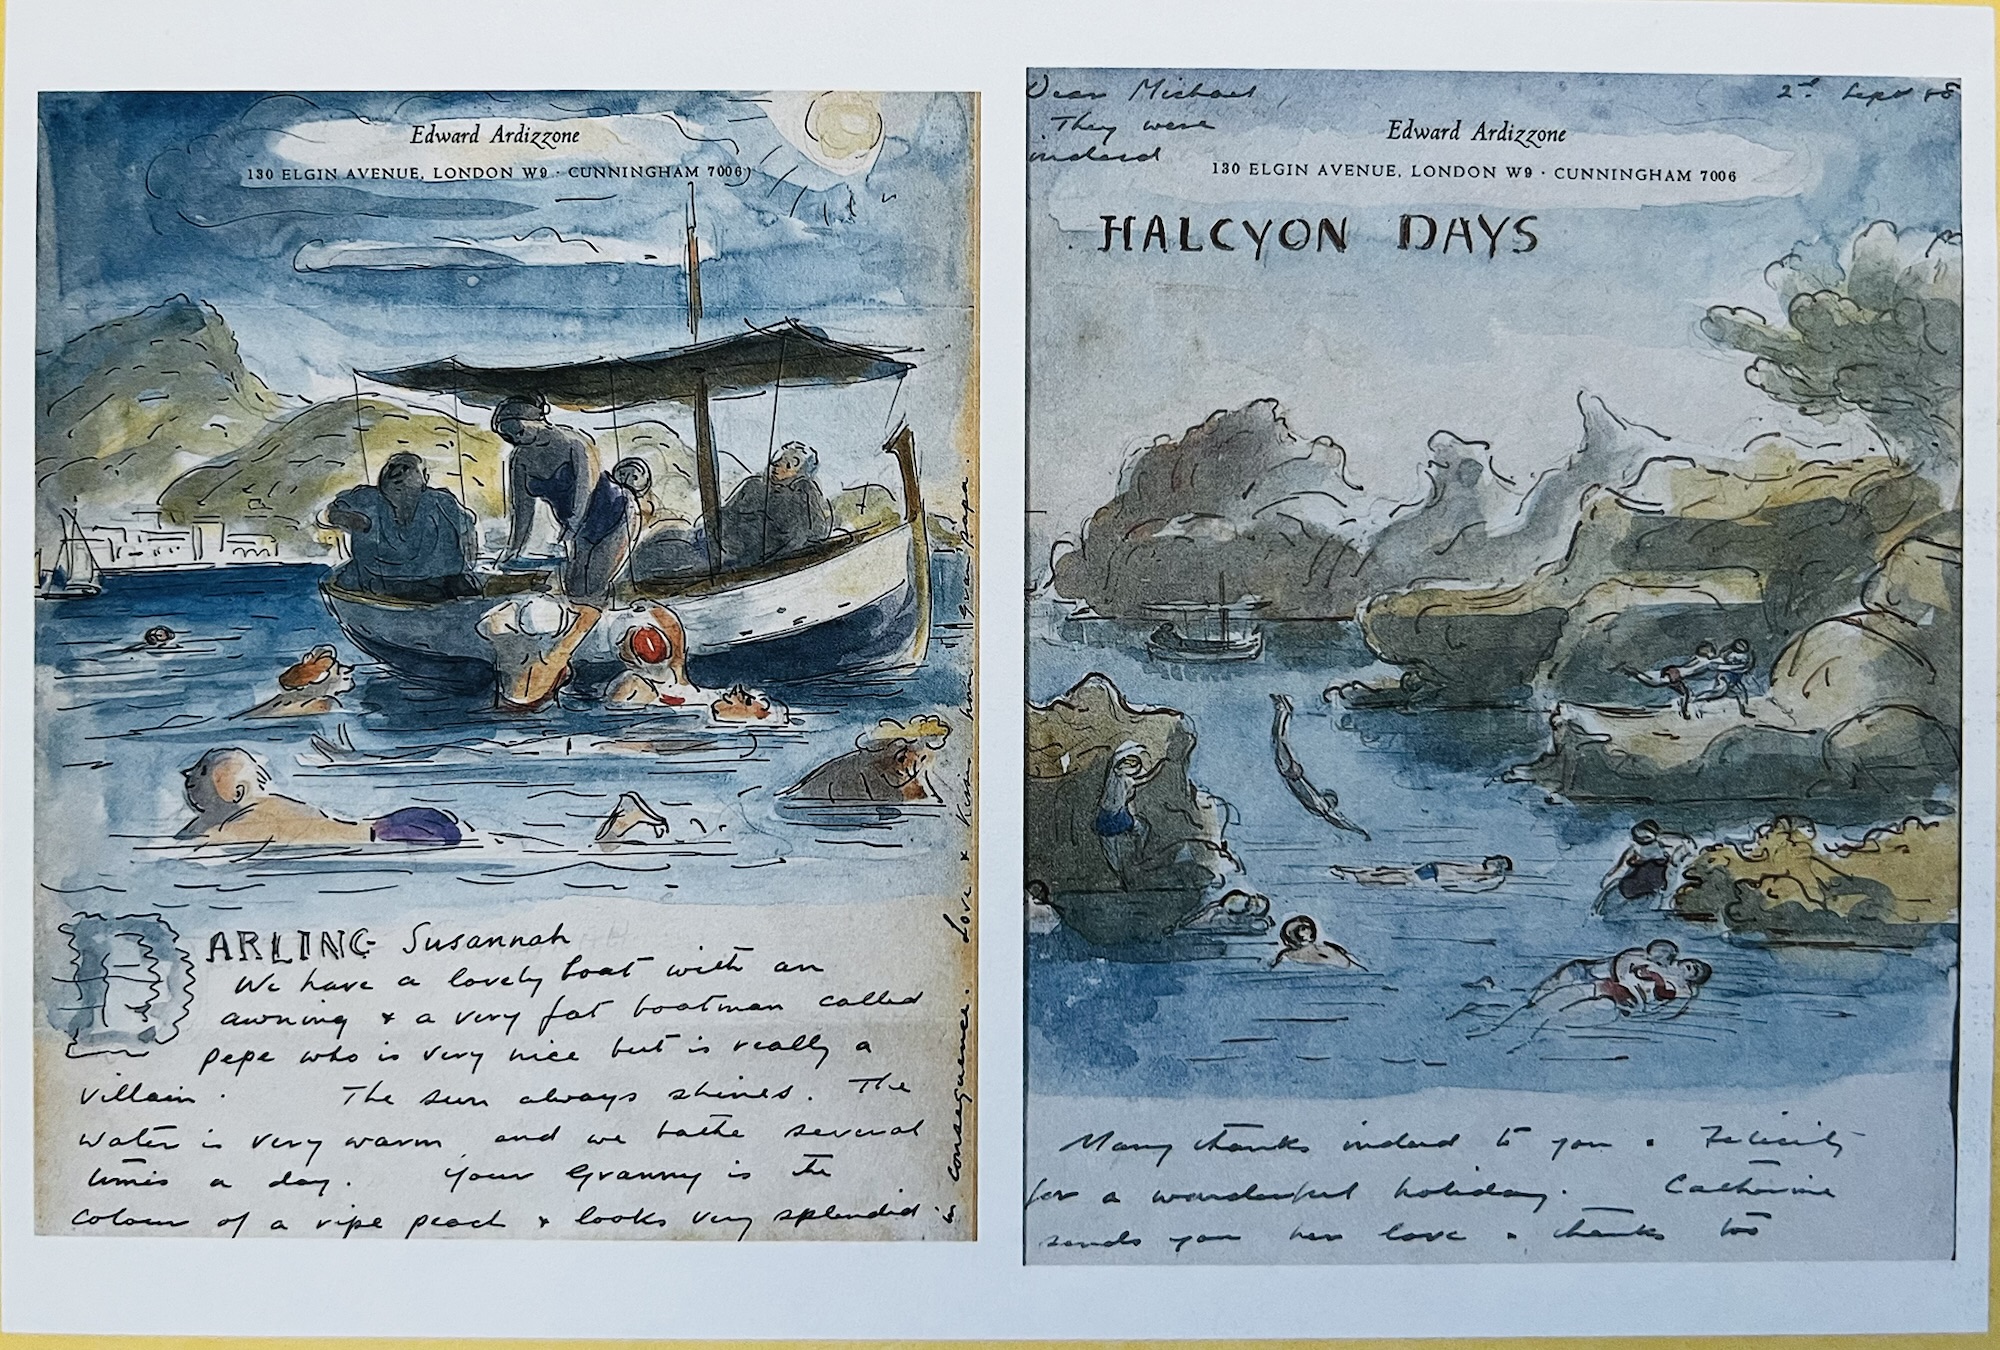 Edward Ardizzone
130 ELGIN AVENUE, LONDON W9 · CUNNINGHAM 7006
DARLING Susannah
We have a lovely boat with an
awning & a very fat boatman called
pepe who is very nice but is really a
villain. The sun always shines. The
water is very warm and we bathe several
times a day. Your Granny is the
colour of a ripe peach & looks very splendid
in consequence. Love & kisses from grandpapa.
Dear Michael
They were
indeed
2nd Sept
Edward Ardizzone
130 ELGIN AVENUE, LONDON W9 · CUNNINGHAM 7006
HALCYON DAYS
Many thanks indeed to you & Felicity
for a wonderful holiday. Catherine
sends you her love & thanks too